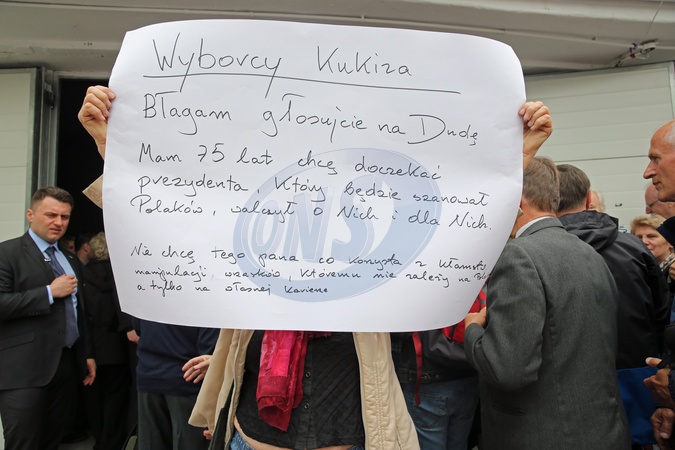 Wyborcy Kukiza
Błagam głosujcie na Dudę
Mam 75 lat chcę doczekać
prezydenta, który będzie szanował
Polaków, walczył o Nich i dla Nich.
Nie chcę tego pana co korzysta z kłamstw,
manipulacji, wrzasków, któremu nie zależy na
a tylko na własnej karierze
ONS